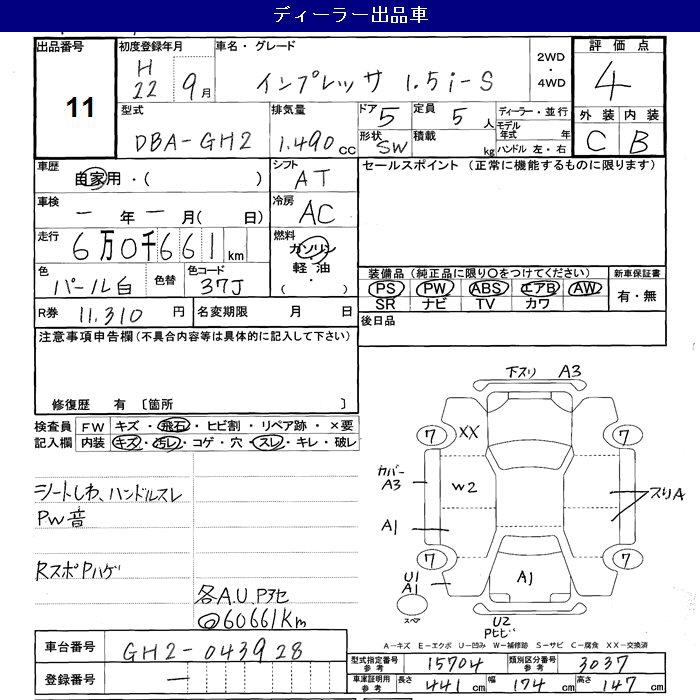 ディーラー出品車
出品番号
11
初度登録年月
H22 9月
車名・グレード
インプレッサ 1.5i-S
2WD・4WD
評価点
4
外装 内装
C B
型式
DBA-GH2
排気量
1.490cc
ドア 5
定員 5人
形状 SW
積載 kg
ディーラー・並行
モデル年式 年
ハンドル 左・右
車歴
自家用・( )
車検
ー年ー月( 日)
走行
6万0千661km
色
パール白
色替
色コード
37J
シフト
AT
冷房
AC
燃料
ガソリン・軽油・
R券 11.310円
名変期限 月 日
セールスポイント (正常に機能するものに限ります)
装備品 (純正品に限り○をつけてください)
PS PW ABS エアB AW
SR ナビ TV カワ
新車保証書
有・無
後日品
注意事項申告欄 (不具合内容等は具体的に記入して下さい)
修復歴 有 〔箇所 〕
検査員記入欄
FW キズ・飛石・ヒビ割・リペア跡・×要
内装 キズ・汚レ・コゲ・穴・スレ・キレ・破レ
シートしわ、ハンドルスレ
PW音
RスポPハゲ
各A.U.Pアセ
◎60661Km
下スリ A3
7 XX 7
カバー A3
W2
スリA
A1
7 7
U1 A1
A1
スペア
U2
Pヒビ
A－キズ E－エクボ U－凹み W－補修跡 S－サビ C－腐食 XX－交換済
車台番号 GH2-043928
登録番号 ー
型式指定番号 参考 15704
類別区分番号 参考 3037
車庫証明用 参考 長さ 441cm 幅 174cm 高さ 147cm